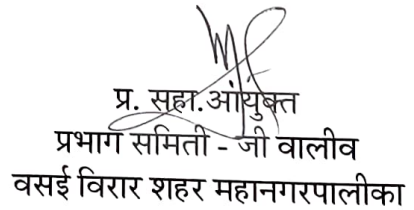 प्र. सहा.आयुक्त
प्रभाग समिती - जी वालीव
वसई विरार शहर महानगरपालीका